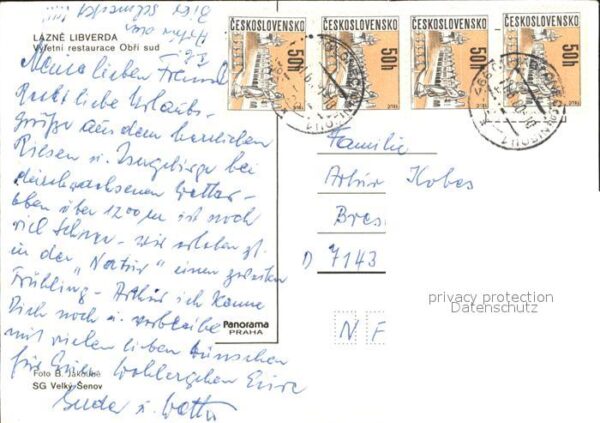 LÁZNĚ LIBVERDA
Výletní restaurace Obří sud
Meine lieben Freunde
Recht liebe Urlaubs-
grüße aus dem herrlichen
Riesen u. Isergebirge bei
Wetter -
oben über 1200 m ist noch
viel Schnee - wir erleben gl.
in der "Natur" einen zweiten
Frühling - Arthur ich kenne
Dich noch u. verbleibe
mit vielen lieben Wünschen
für Euer Wohlergehen Eure
u.
Hier schmeckt
ČESKOSLOVENSKO
50h
ČESKOSLOVENSKO
50h
ČESKOSLOVENSKO
50h
ČESKOSLOVENSKO
50h
Familie
Artur Kobes
Bres
D 7143
N F
Panorama
PRAHA
Foto B. Jakoubě
SG Velký Šenov
privacy protection
Datenschutz